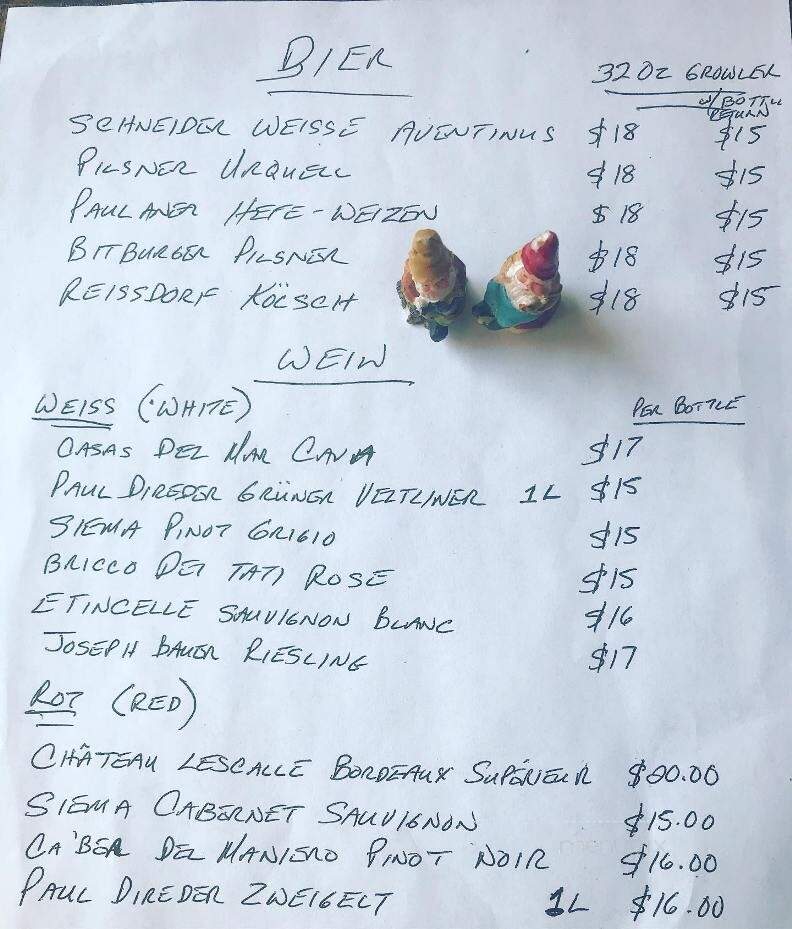 BIER
32 OZ GROWLER
W/ BOTTLE
RETURN
SCHNEIDER WEISSE AVENTINUS $18 $15
PILSNER URQUELL $18 $15
PAULANER HEFE-WEIZEN $18 $15
BITBURGER PILSNER $18 $15
REISSDORF KÖLSCH $18 $15
WEIN
WEISS (WHITE) PER BOTTLE
CASAS DEL MAR CAVA $17
PAUL DIREDER GRÜNER VELTLINER 1L $15
SIEMA PINOT GRIGIO $15
BRICCO DEI TATI ROSE $15
ETINCELLE SAUVIGNON BLANC $16
JOSEPH BAUER RIESLING $17
ROT (RED)
CHÂTEAU LESCALLE BORDEAUX SUPÉRIEUR $20.00
SIEMA CABERNET SAUVIGNON $15.00
CA'BEA DEL MANIERO PINOT NOIR $16.00
PAUL DIREDER ZWEIGELT 1L $16.00